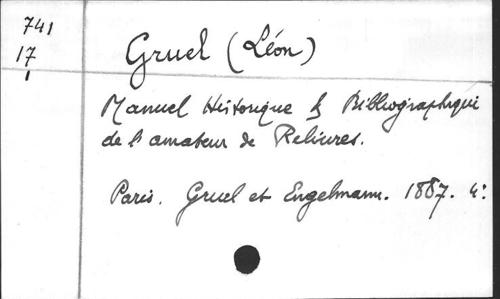 741
17
Gruel (Léon)
Manuel Historique & Bibliographique
de l'amateur de Reliures.
Paris. Gruel et Engelmann. 1887. 4: